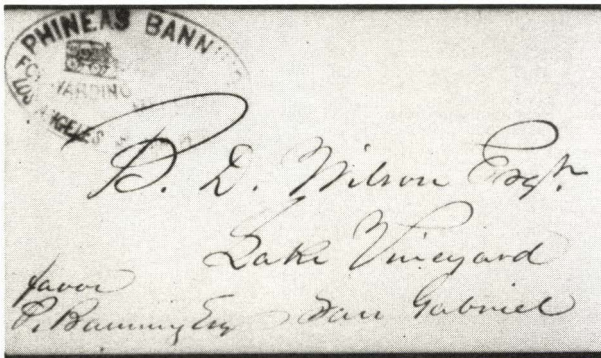 PHINEAS BANN
FORWARDING
LOS ANGELES
B. D. Wilson Esqr.
Lake Vineyard
San Gabriel
favor
P. Banning Esq